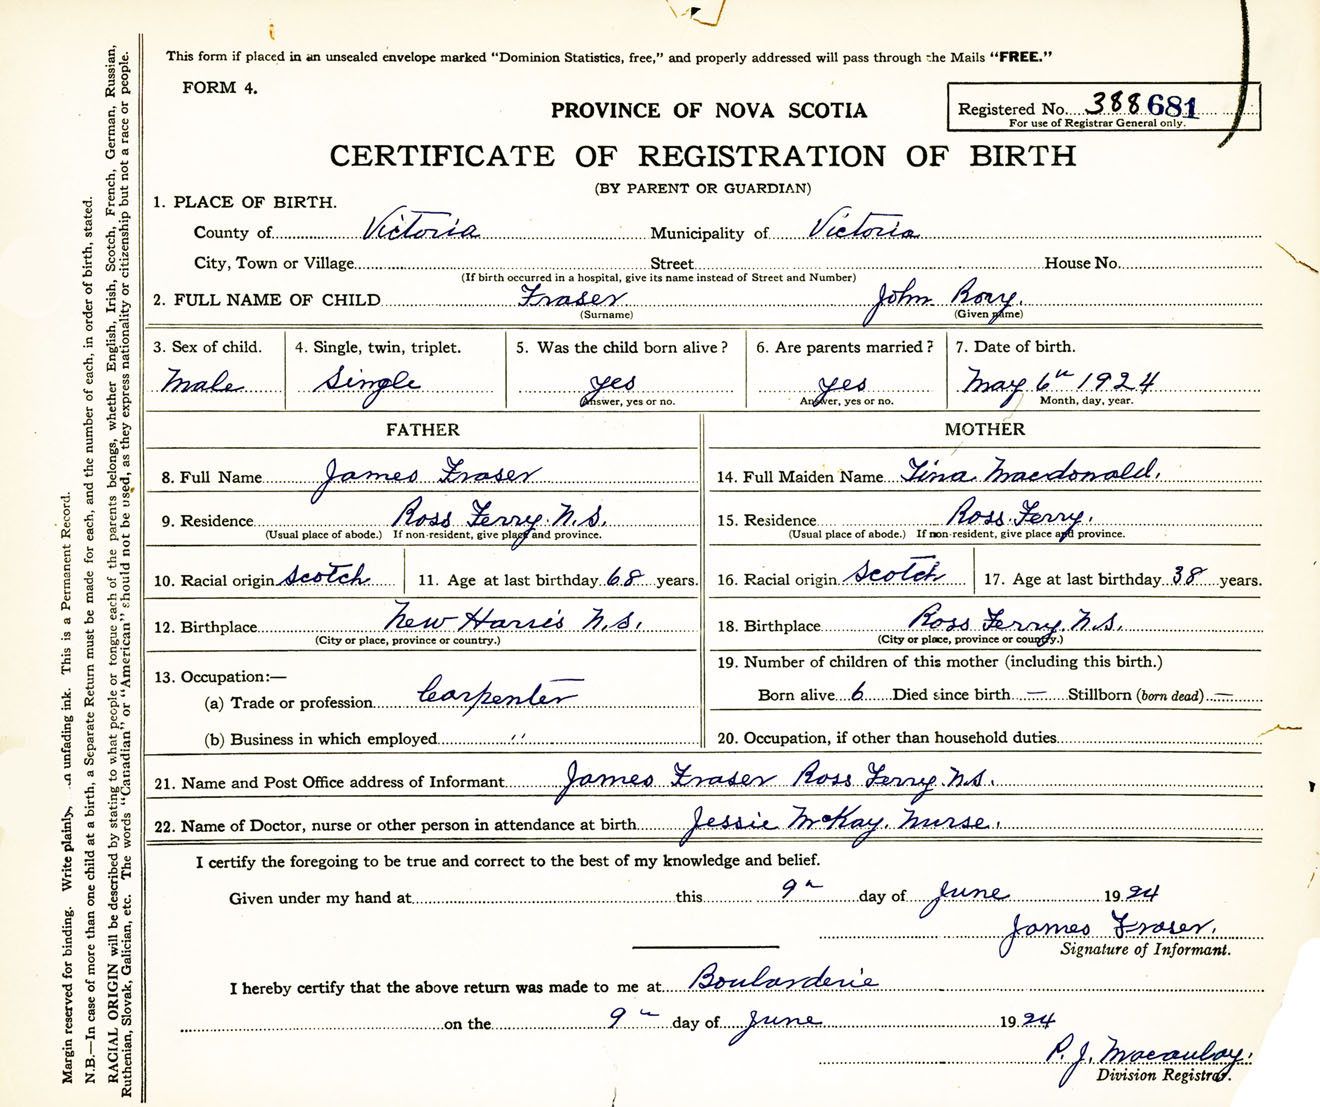 This form if placed in an unsealed envelope marked “Dominion Statistics, free,” and properly addressed will pass through the Mails “FREE.”
FORM 4.
PROVINCE OF NOVA SCOTIA
Registered No. 388681
For use of Registrar General only.
CERTIFICATE OF REGISTRATION OF BIRTH
(BY PARENT OR GUARDIAN)
1. PLACE OF BIRTH.
County of Victoria Municipality of Victoria
City, Town or Village Street House No.
(If birth occurred in a hospital, give its name instead of Street and Number)
2. FULL NAME OF CHILD Fraser John Rory.
(Surname) (Given name)
3. Sex of child. 4. Single, twin, triplet. 5. Was the child born alive? 6. Are parents married? 7. Date of birth.
Male Single yes yes May 6th 1924
Answer, yes or no. Answer, yes or no. Month, day, year.
FATHER MOTHER
8. Full Name James Fraser 14. Full Maiden Name Tina Macdonald.
9. Residence Ross Ferry. N.S. 15. Residence Ross Ferry.
(Usual place of abode.) If non-resident, give place and province. (Usual place of abode.) If non-resident, give place and province.
10. Racial origin Scotch 11. Age at last birthday 68 years. 16. Racial origin Scotch 17. Age at last birthday 38 years.
12. Birthplace New Harris N.S. 18. Birthplace Ross Ferry. N.S.
(City or place, province or country.) (City or place, province or country.)
19. Number of children of this mother (including this birth.)
13. Occupation:—
(a) Trade or profession Carpenter Born alive 6 Died since birth — Stillborn (born dead) —
(b) Business in which employed " 20. Occupation, if other than household duties
21. Name and Post Office address of Informant James Fraser Ross Ferry. N.S.
22. Name of Doctor, nurse or other person in attendance at birth Jessie McKay. Nurse.
I certify the foregoing to be true and correct to the best of my knowledge and belief.
Given under my hand at this 9th day of June 1924
James Fraser.
Signature of Informant.
I hereby certify that the above return was made to me at Boularderie
on the 9th day of June 1924
P. J. Macaulay.
Division Registrar.
Margin reserved for binding. Write plainly, unfading ink. This is a Permanent Record.
N.B.—In case of more than one child at a birth, a Separate Return must be made for each, and the number of each, in order of birth, stated.
RACIAL ORIGIN will be described by stating to what people or tongue each of the parents belongs, whether English, Irish, Scotch, French, German, Russian,
Ruthenian, Slovak, Galician, etc. The words “Canadian” or “American” should not be used, as they express nationality or citizenship but not a race or people.